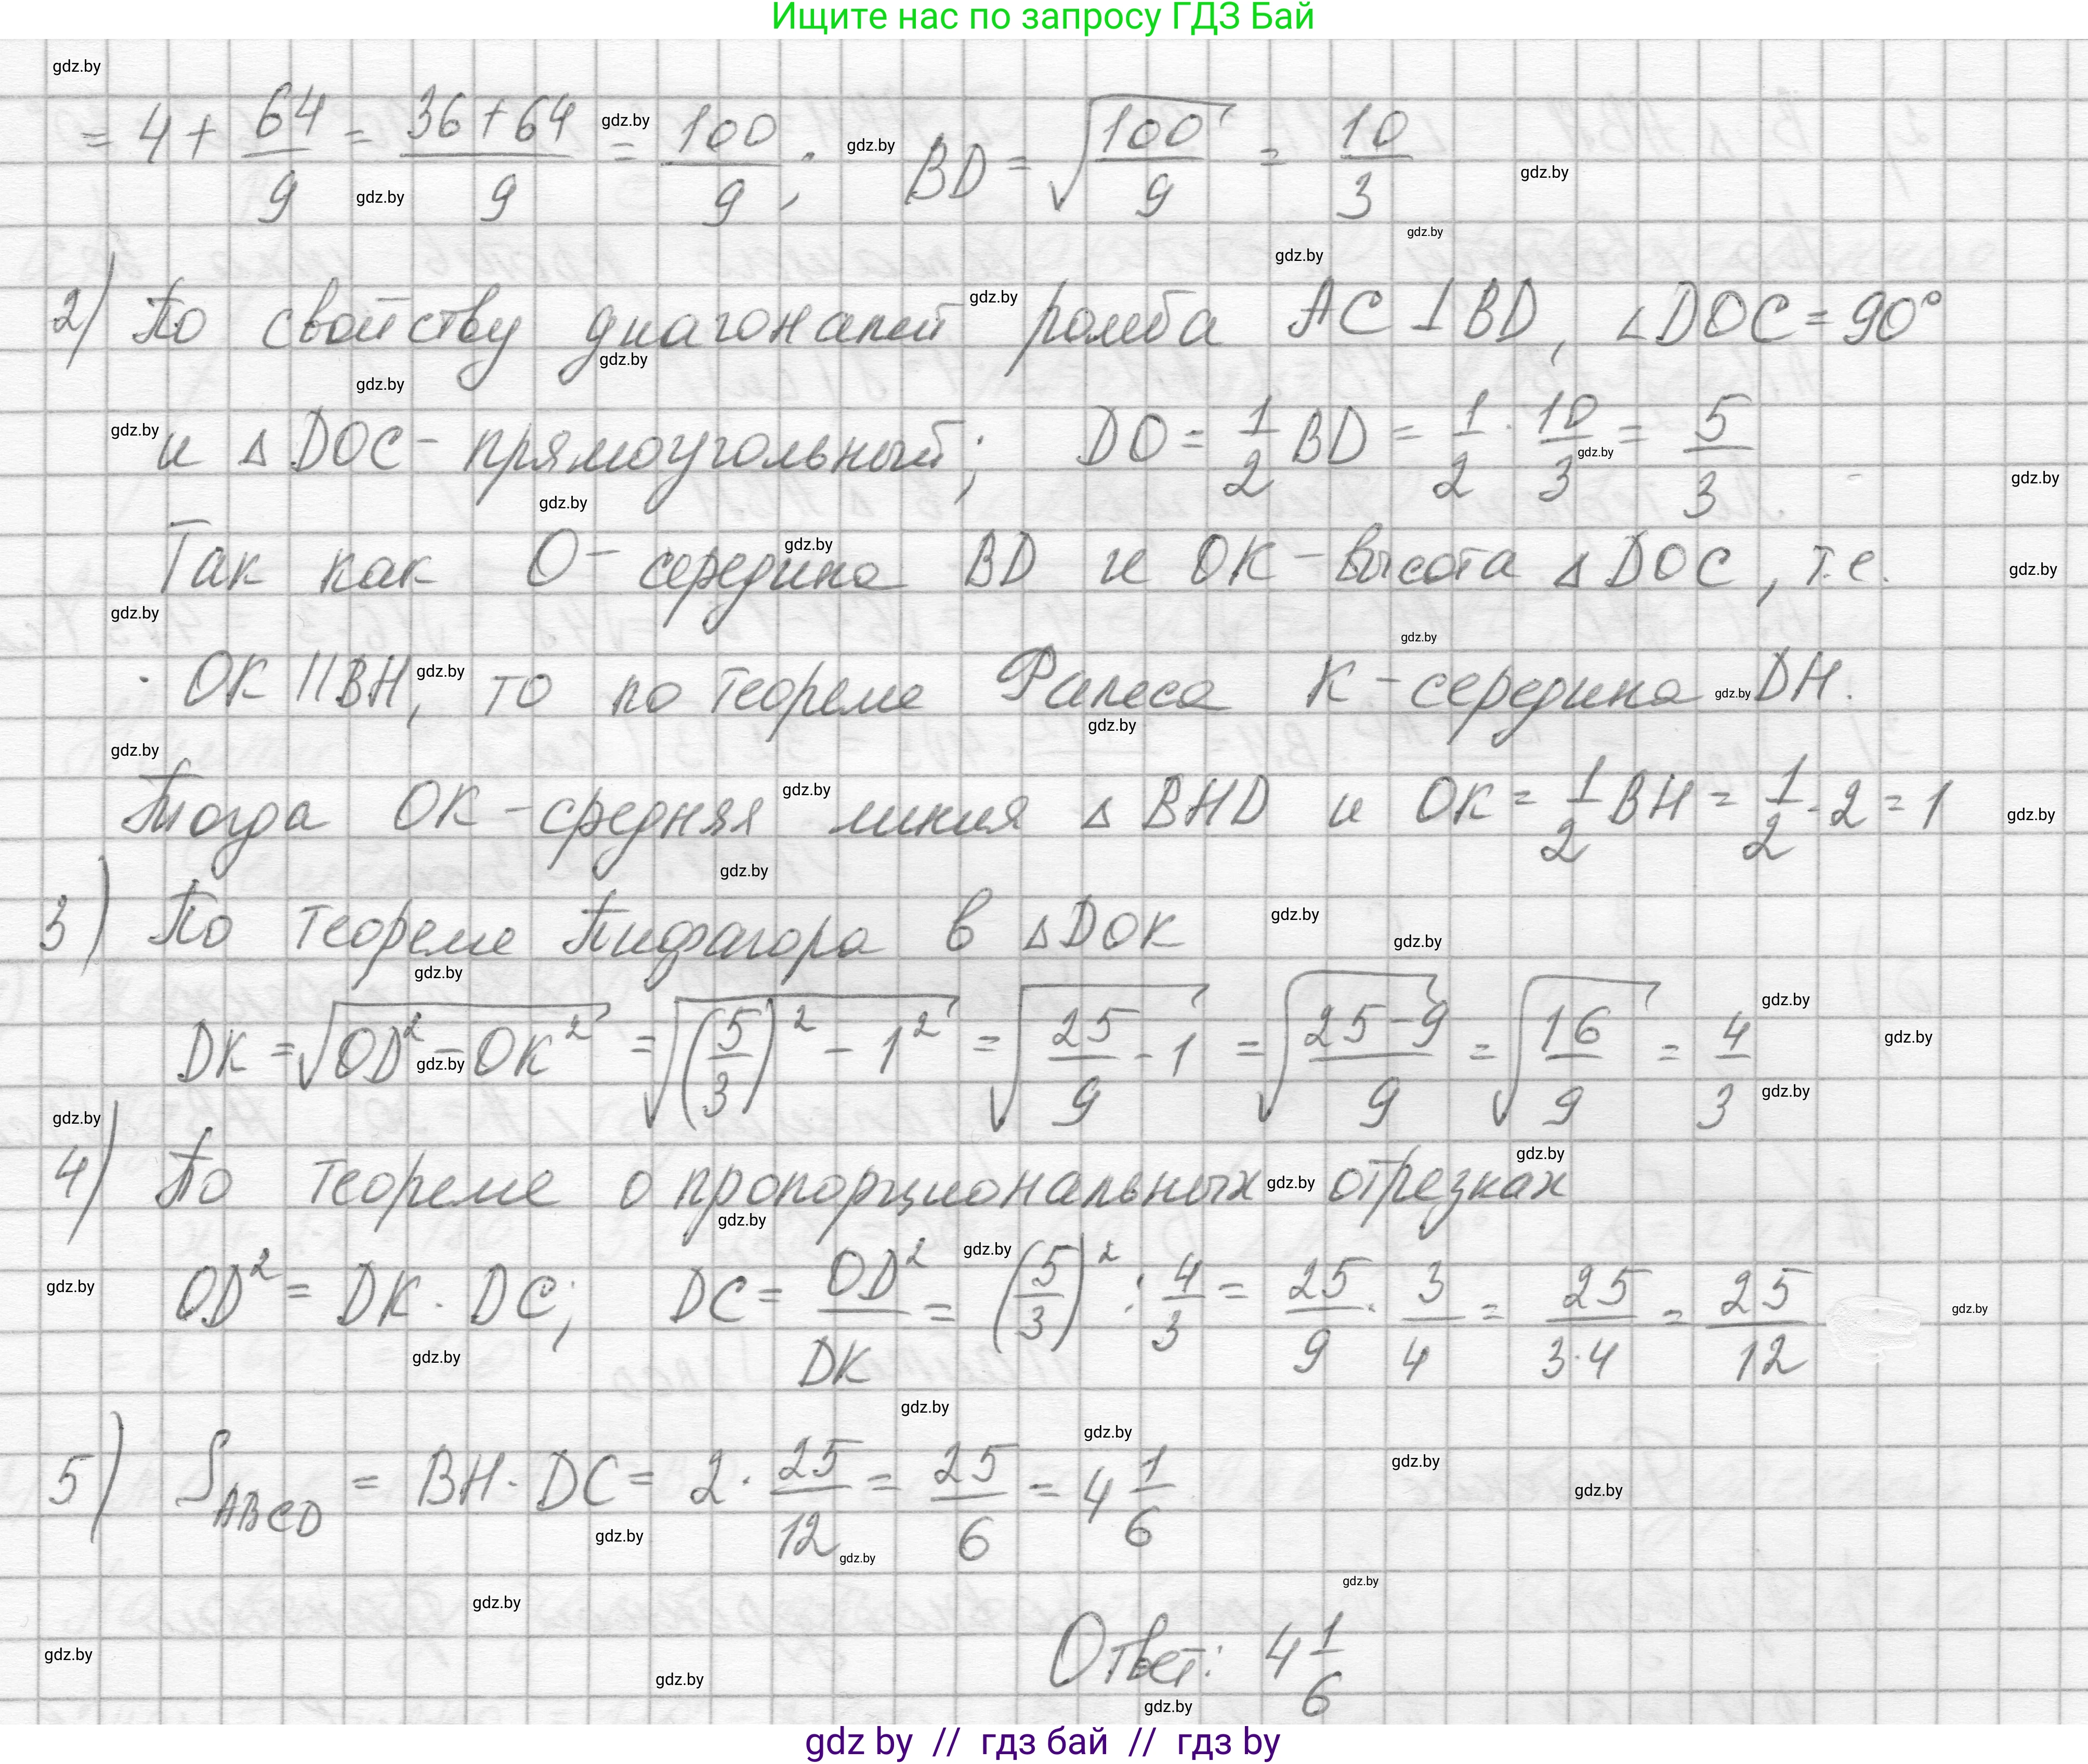 Ищите нас по запросу ГДЗ Бай
= 4 + 64/9 = (36+64)/9 = 100/9; BD = √(100/9) = 10/3
2) По свойству диагоналей ромба AC ⊥ BD, ∠DOC = 90°
и △DOC - прямоугольный; DO = 1/2 BD = 1/2 · 10/3 = 5/3
Так как O - середина BD и OK - высота △DOC, т.е.
OK || BH, то по теореме Фалеса K - середина DH.
Тогда OK - средняя линия △BHD и OK = 1/2 BH = 1/2 · 2 = 1
3) По теореме Пифагора в △DOK
DK = √(OD² - OK²) = √((5/3)² - 1²) = √(25/9 - 1) = √((25-9)/9) = √(16/9) = 4/3
4) По теореме о пропорциональных отрезках
OD² = DK · DC; DC = OD²/DK = (5/3)² : 4/3 = 25/9 · 3/4 = 25/(3·4) = 25/12
5) S_ABCD = BH · DC = 2 · 25/12 = 25/6 = 4 1/6
Ответ: 4 1/6
gdz by // гдз бай // гдз by